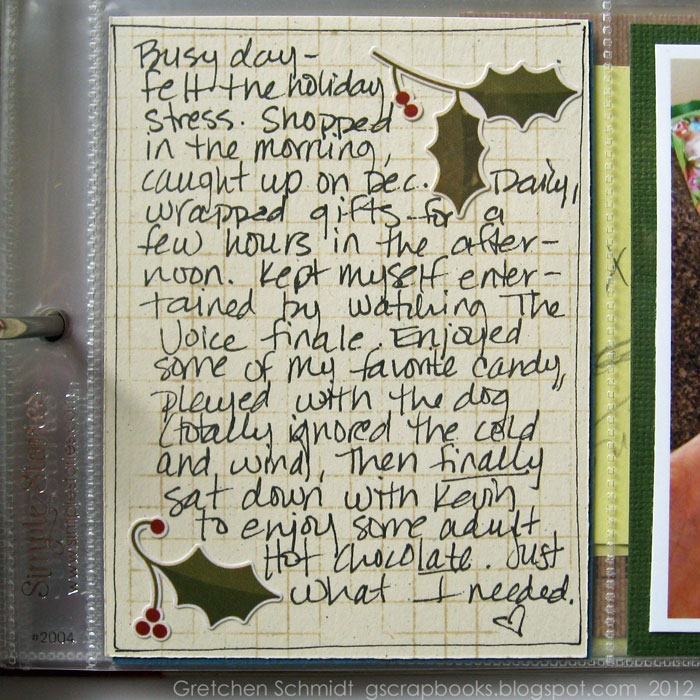 Busy day -
felt the holiday
stress. Shopped
in the morning,
caught up on Dec. Daily,
wrapped gifts for a
few hours in the after-
noon. Kept myself enter-
tained by watching The
Voice finale. Enjoyed
some of my favorite candy,
played with the dog
(totally ignored the cold
and wind), Then finally
sat down with Kevin
to enjoy some adult
Hot Chocolate. Just
what I needed.
Simple Stories
www.simplestories.com
#2004
Gretchen Schmidt gscrapbooks.blogspot.com 2012